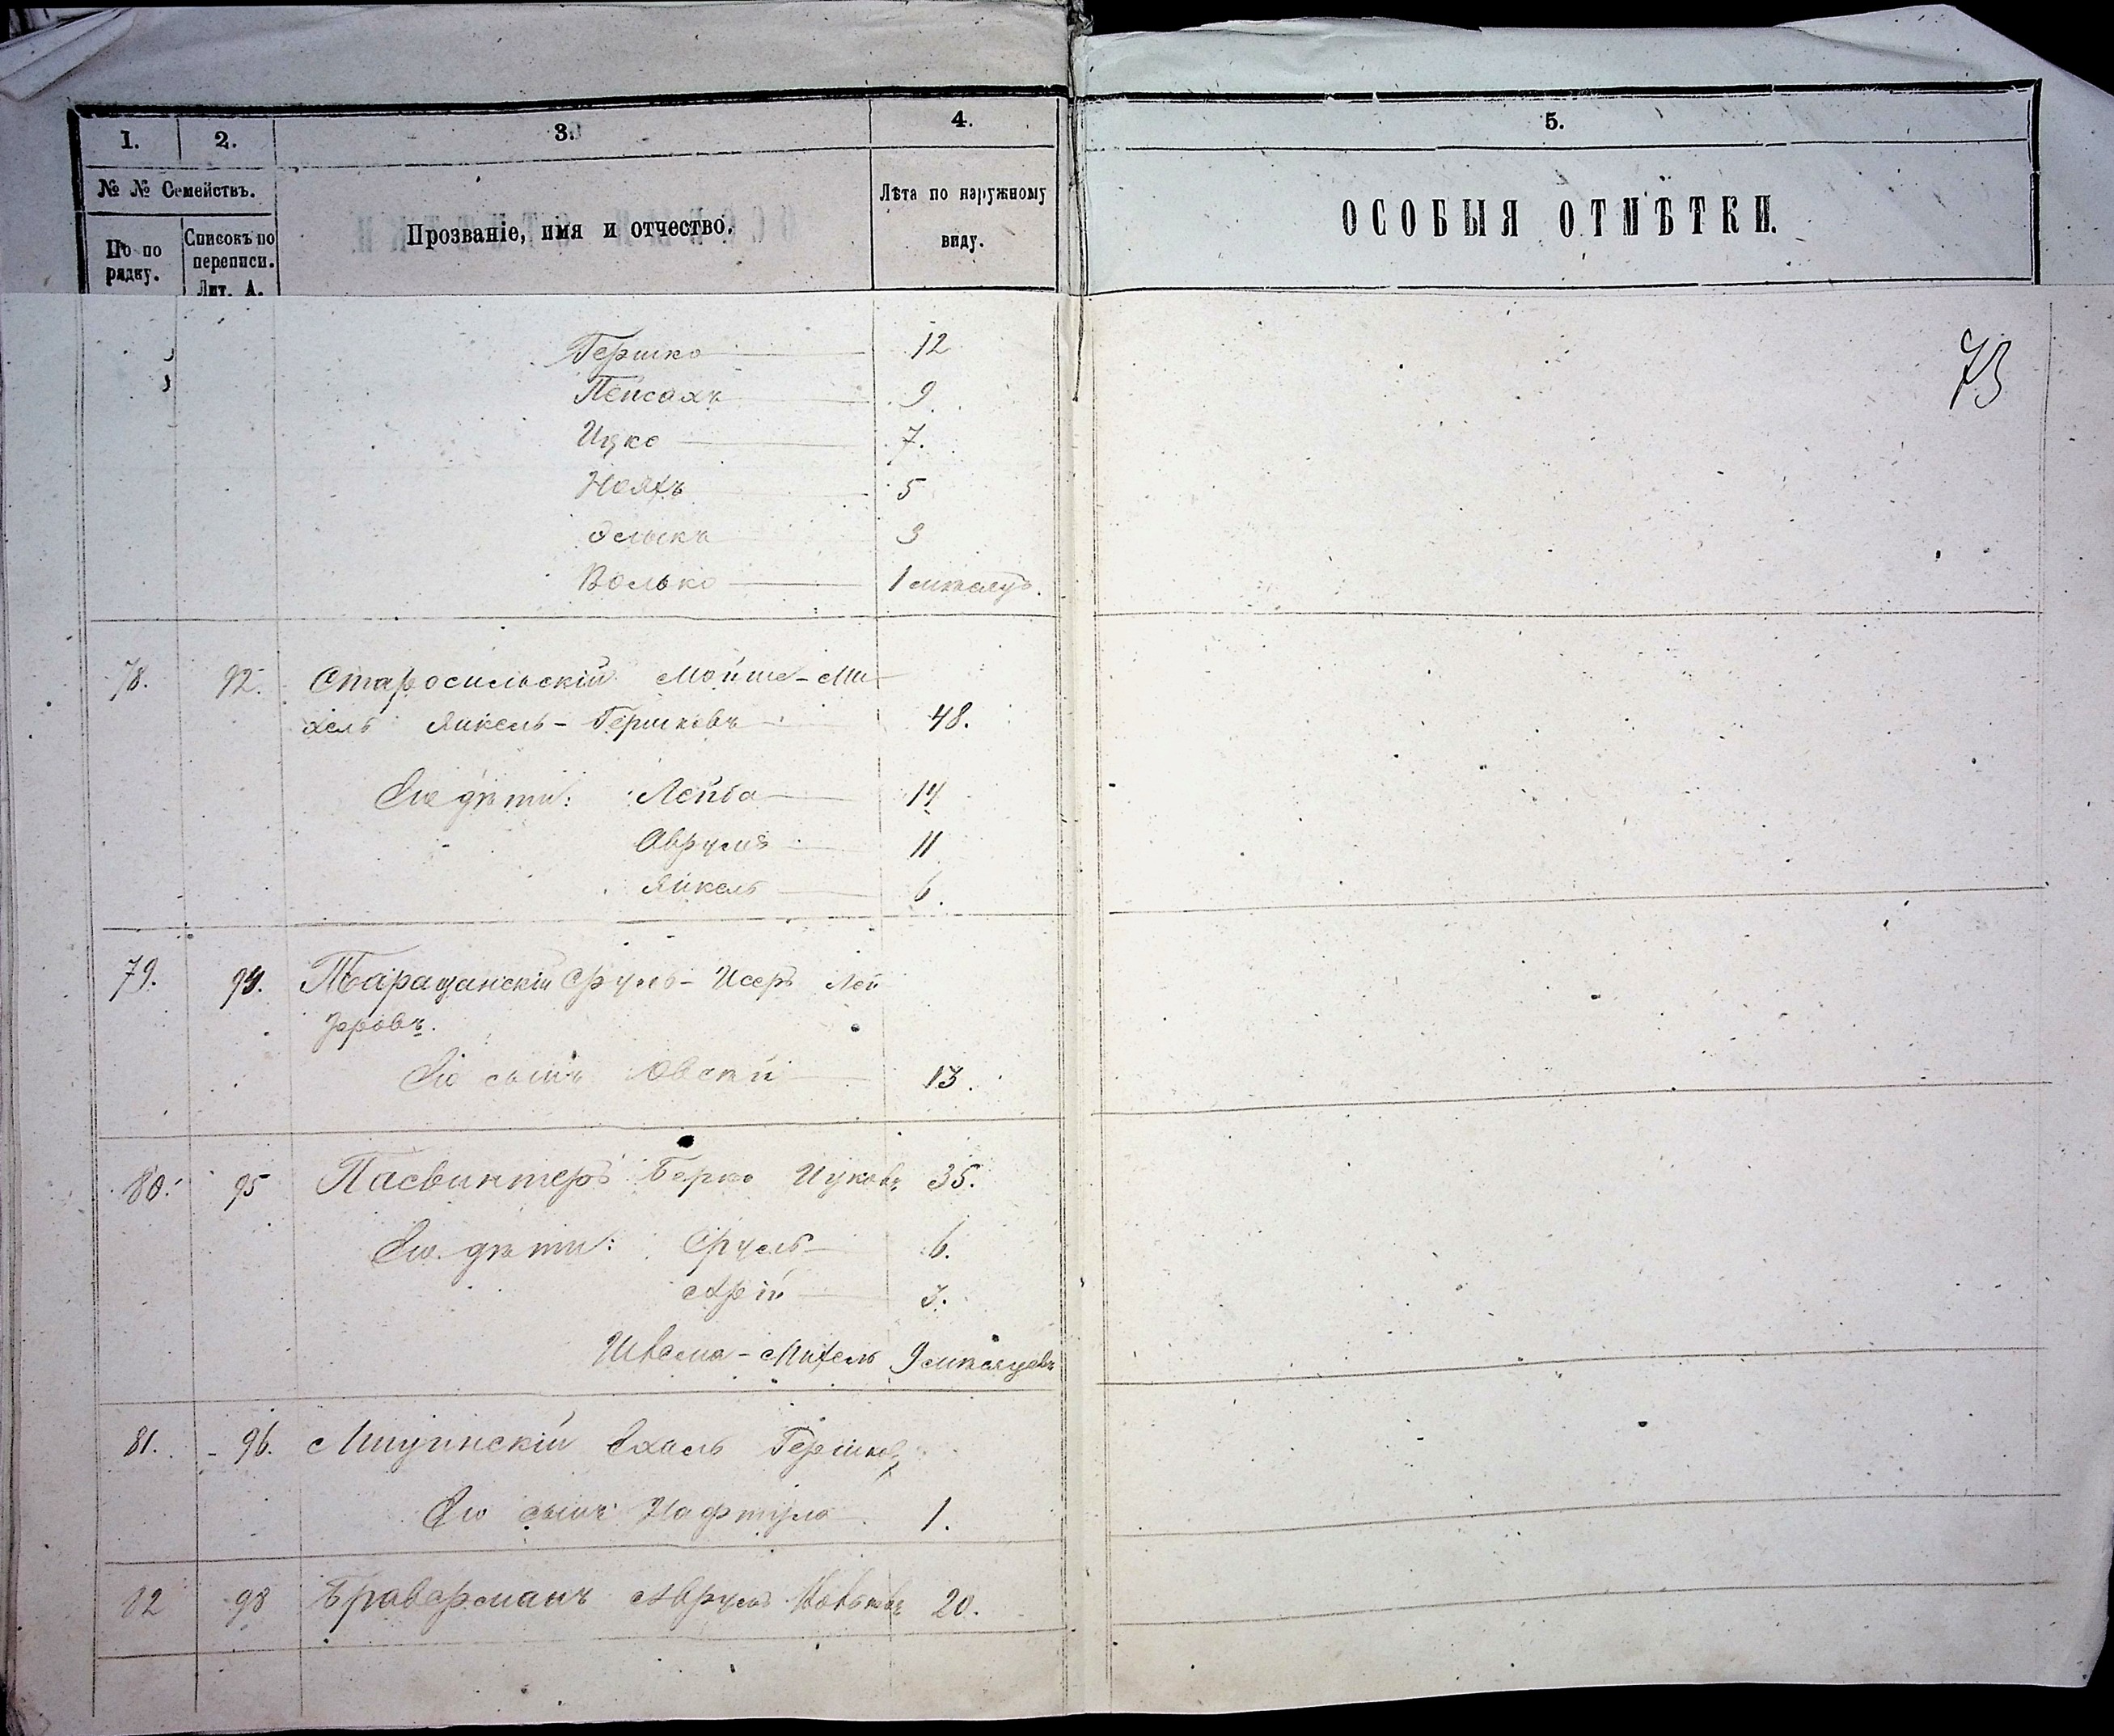 1. 2. 3. 4. 5.
№ № Семействъ. Прозваніе, имя и отчество. Лѣта по наружному виду. ОСОБЫЯ ОТМѢТКИ.
По по рядку. Списокъ по переписи. Лит. А.
73
Гершко 12
Пейсахъ 9
Ицко 7.
Нояхъ 5
3
Волько 1 мѣсяцъ.
78. 92. Старосильскій Мойше-Ми
хель Янкель-Гершковъ 48.
Его дѣти: Лейба 14
Аврумъ 11
Янкель 6.
79. 94. Таращанскій Сруль-Исеръ Лей
зеровъ.
Его сынъ Овсей 13.
80. 95 Пасвинтеръ Берко Ицковъ 35.
Его дѣти: Сруль 6.
3.
Михель 9 мѣсяцевъ
81. 96. Гершков
Его сынъ Нафтула 1.
82 98 Браверманъ Аврумъ 20.